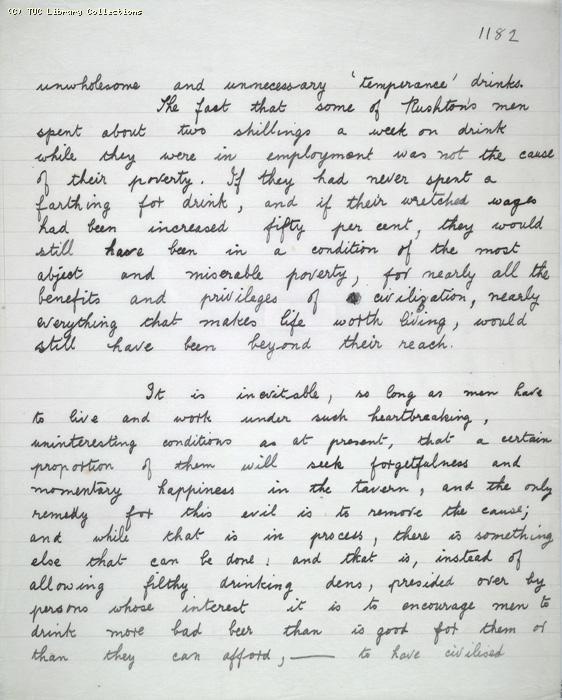 (C) TUC Library Collections
1182
unwholesome and unnecessary 'temperance' drinks.
The fact that some of Rushton's men
spent about two shillings a week on drink
while they were in employment was not the cause
of their poverty. If they had never spent a
farthing for drink, and if their wretched wages
had been increased fifty per cent, they would
still have been in a condition of the most
abject and miserable poverty, for nearly all the
benefits and privileges of civilization, nearly
everything that makes life worth living, would
still have been beyond their reach.
It is inevitable, so long as men have
to live and work under such heartbreaking,
uninteresting conditions as at present, that a certain
proportion of them will seek forgetfulness and
momentary happiness in the tavern, and the only
remedy for this evil is to remove the cause;
and while that is in process, there is something
else that can be done: and that is, instead of
allowing filthy drinking dens, presided over by
persons whose interest it is to encourage men to
drink more bad beer than is good for them or
than they can afford, — to have civilised